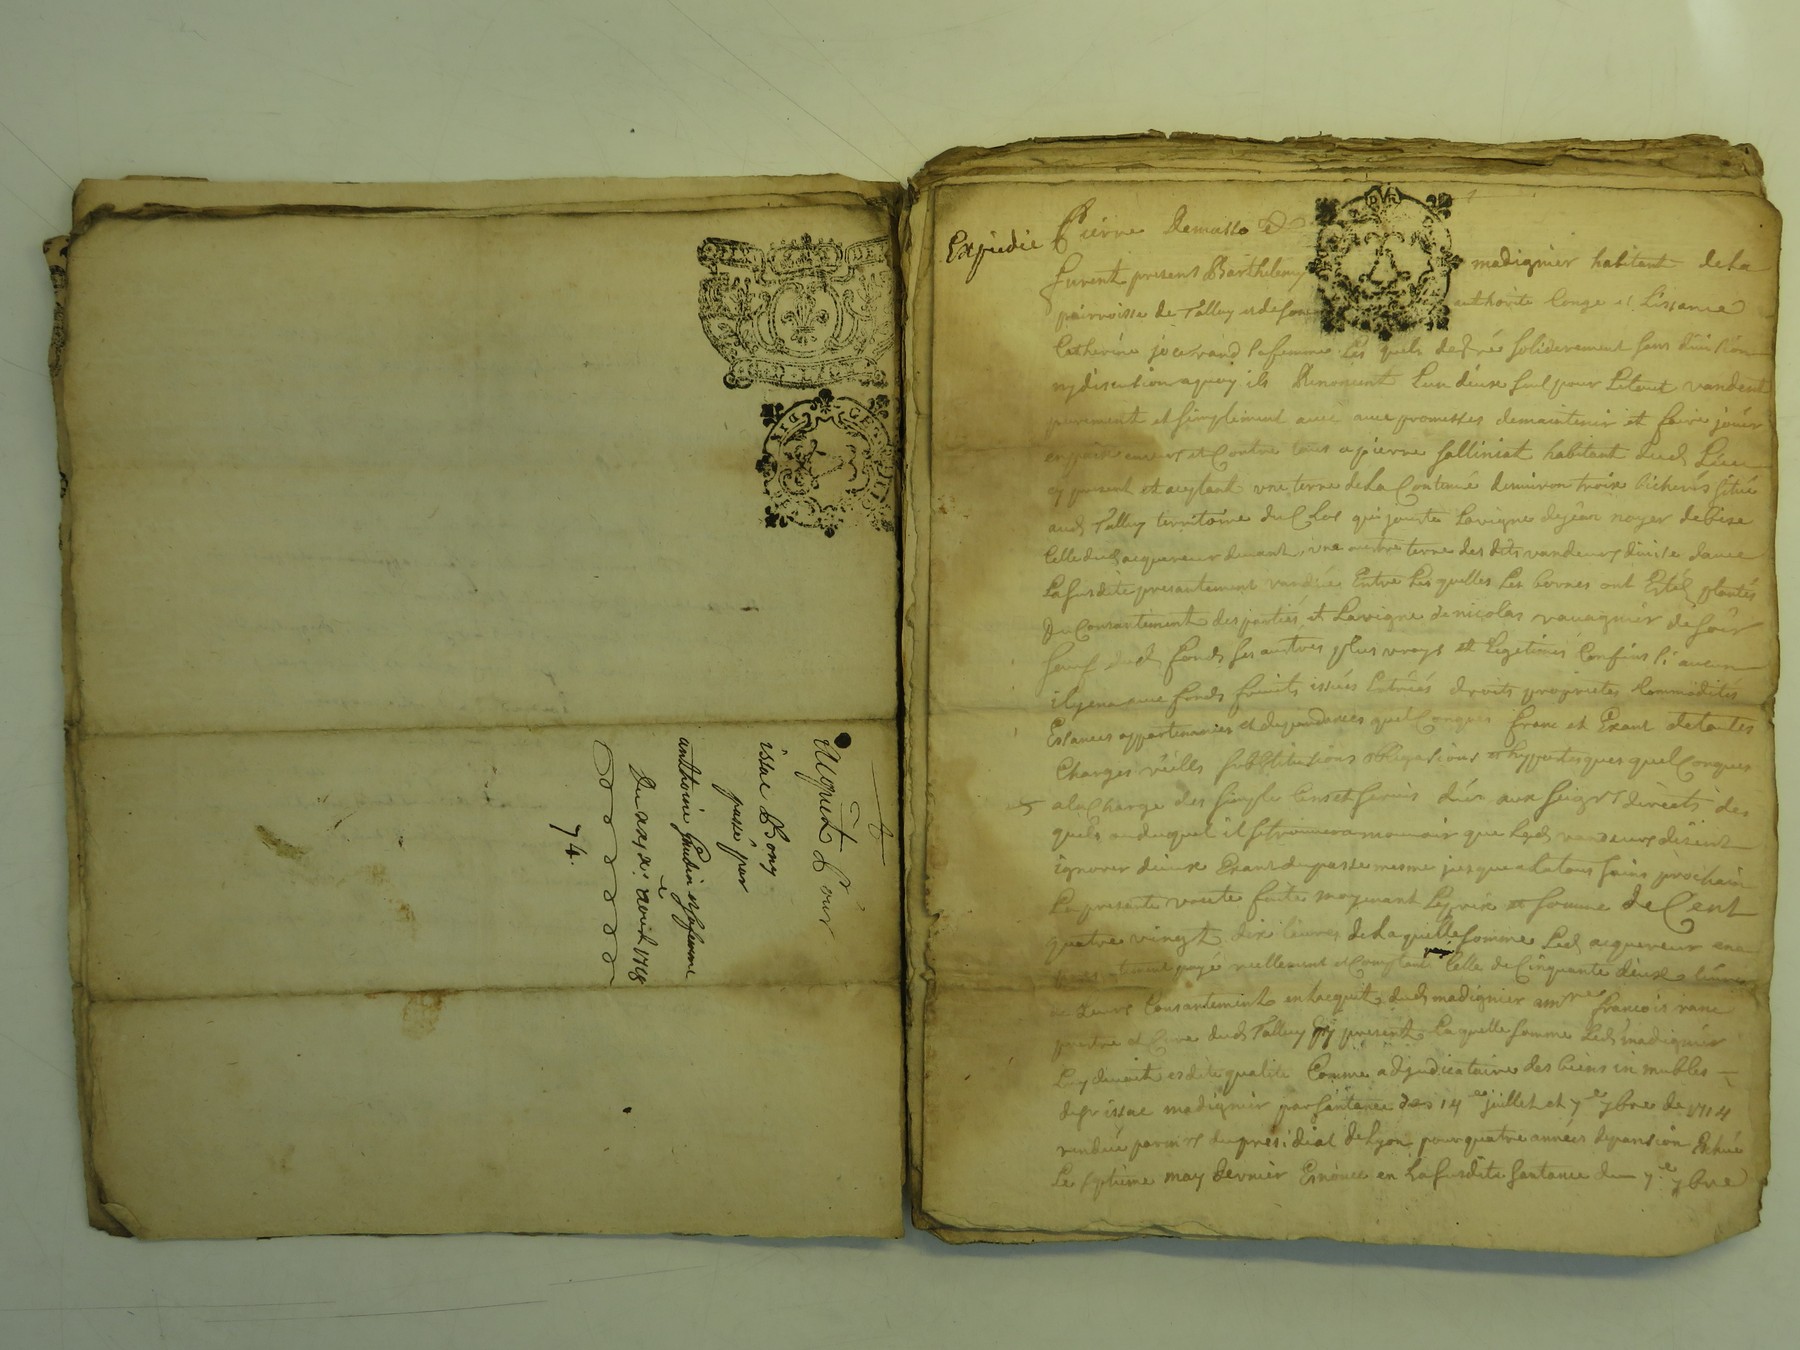 acquest Pour
isaac Bony
passé par
anthoine Gaudin et sa femme
Du xxx avril 1718
74.
Expedié
Pierre Demasso
furent presens Barthelemy madignier habitant de La
parroisse de Talluy et de son authorité Conge et Lissance
Catherine jocerand sa femme Les quels de gré soliderement sans division
ny discution a quoy ils Renoncent Lun deux seul pour Le tout vandent
purement et simplement avec promesses de maintenir et faire jouir
envers et Contre tous a pierre falliniat habitant dud Lieu
cy present et aceptant une terre de La Contenüe denviron trois bicherés situé
aud Talluy territoire du Clos qui jouxte Lavigne de jean noyer de bize
Celle dud acquereur devant, une autre terre des dits vandeurs divise davec
La susdite presantement vandüe Entre Les quelles Les bornes ont Esté plantés
Du Consantement des parties, et Lavigne de nicolas vavagnier de soir
sauf dud fonds ses autres plus vrays et Legitimes Confins si aucun
il y en a avec fonds fruits issües Entrées droits proprietes Commodités
Esÿances appartenances et dependances quelConques franc et Exant de toutes
Charges vielles substitutions obligations et hyppoteques quelConques
a la Charge des simple Cens et servis dües aux seigrs directs des
quels ou duquel il se trouvera mouvoir que Lesd vandeurs disent
ignorer deüe Exant du passe mesme jusque a la tous sains prochain
La presente vante faite moyenant Le prix et somme de Cent
quatre vingt dix livres de La quelle somme Led acquereur en a
payé reellement et Comptant Celle de Cinquante deux livres
de Leurs Consantement en Lacquit dud madignier a mre francois ranc
prestre et Cure dud Talluy icy present Laquelle somme Led madignier
Luy devoit esdite qualite Comme adjudicataire des biens in mubles
de fr issac madignier par santance des 14e juillet et 7e 7bre de 1714
rendüe par mrs du presidial de Lyon pour quatre années de pansion Echüe
Le septieme may dernier Enoncé en La susdite santance du 7e 7bre